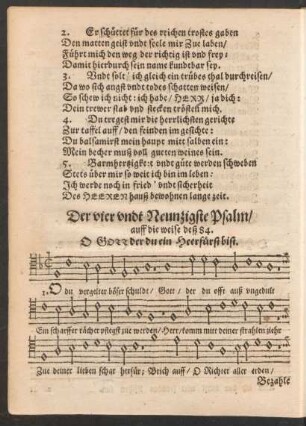 2. Er schüttet für des reichen trostes gaben
Den matten geist vndt seele mir Zue laben/
Führt mich den weg der richtig ist vnd frey:
Damit hierdurch sein name kundtbar sey.
3. Vndt solt' ich gleich ein trübes thal durchreisen/
Da wo sich angst vndt todes schatten weisen/
Es schew ich nicht: ich habe/ HERR/ ja dich:
Dein trewer stab vnd stecken tröstett mich.
4. Du tregest mir die herrlichsten gerichte
Zur taffel auff/ den feinden im gesichte:
Du balsamirst mein haupt mitt salben ein:
Mein becher muß voll guetten weines sein.
5. Barmhertzigkeit vndt güte werden schweben
Stets über mir so weit ich bin im leben:
Ich werde noch in fried' vndt sicherheit
Des HEEREN hauß bewohnen lange zeit.
Der vier vndt Neunzigste Psalm/
auff die weise deß 84.
O GOTT der du ein Heerfürst bist.
1. O du vergelter böser schuldt/ Gott/ der du offt auß vngedult
Ein scharffer rächer pflegst zue werden/ Herr/ komm mitt deiner strahlen ziehr
Zue deiner lieben schar herfür; Brich auff/ O Richter aller erden/
Bezahle